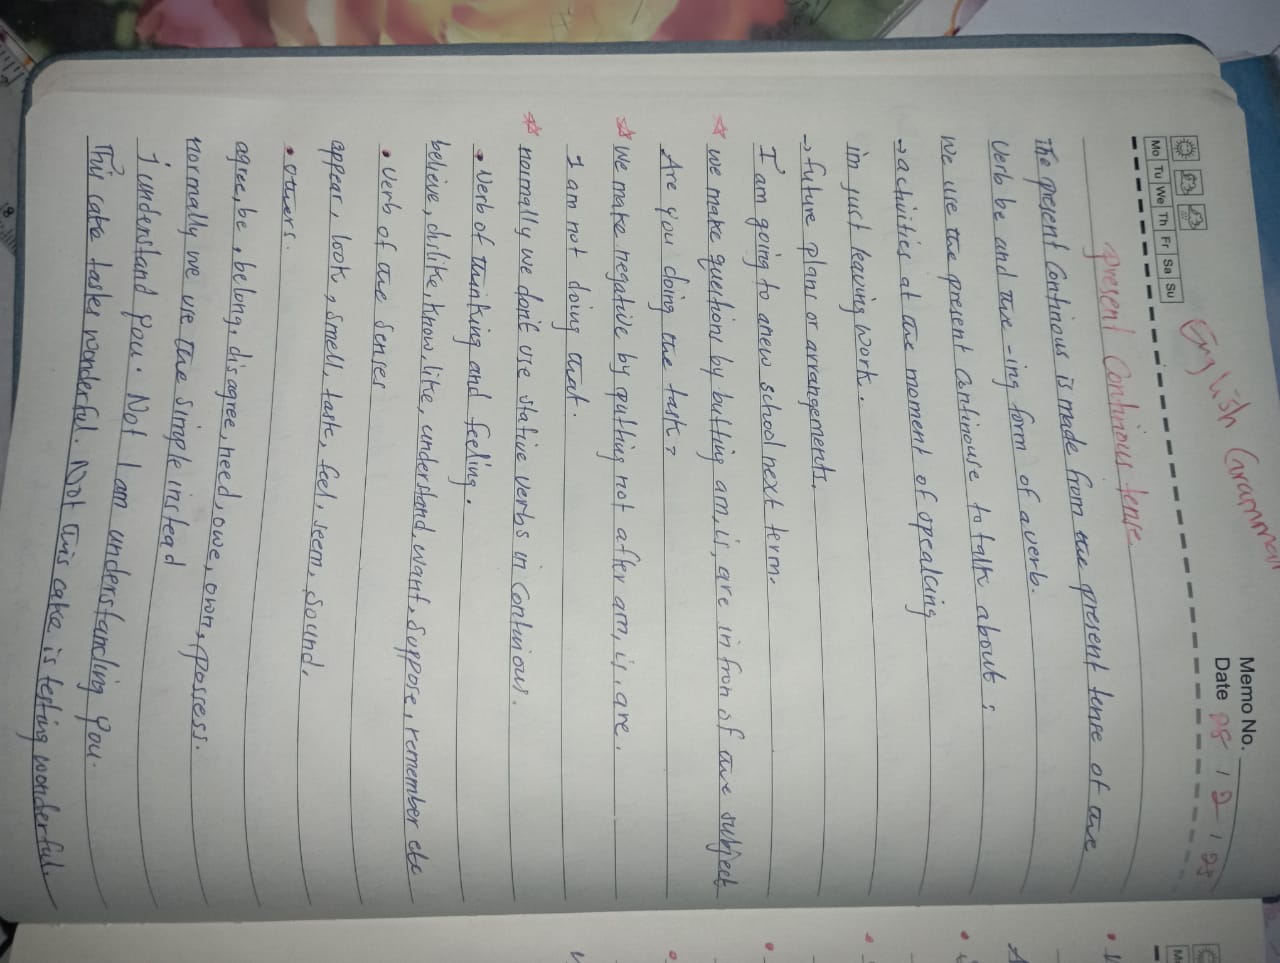 English Grammar
Memo No.
Mo Tu We Th Fr Sa Su
Date 28 / 2 / 25
present Continous tense
The present Continous is made from the present tense of the
Verb be and the -ing form of a verb.
We use the present Continouse to talk about :
→ activities at the moment of opealcing
im just leaving work.
→ future plans or arrangements.
I am going to anew school next term.
☆ we make questions by butting am, is, are in fron of the subject
Are you doing the task?
☆ we make negative by putting not after am, is, are.
I am not doing that.
☆ normally we don't use stative verbs in Continious.
• Verb of thinking and feeling.
believe, dislike, know, like, understand, want, suppose, remember etc
• Verb of the senses
appear, look, smell, taste, feel, seem, sound,
• others.
agree, be, belong, disagree, need, owe, own, possess.
normally we use the simple instead
I understand you. Not I am understanding you.
This cake tastes wonderful. Not this cake is testing wonderful.